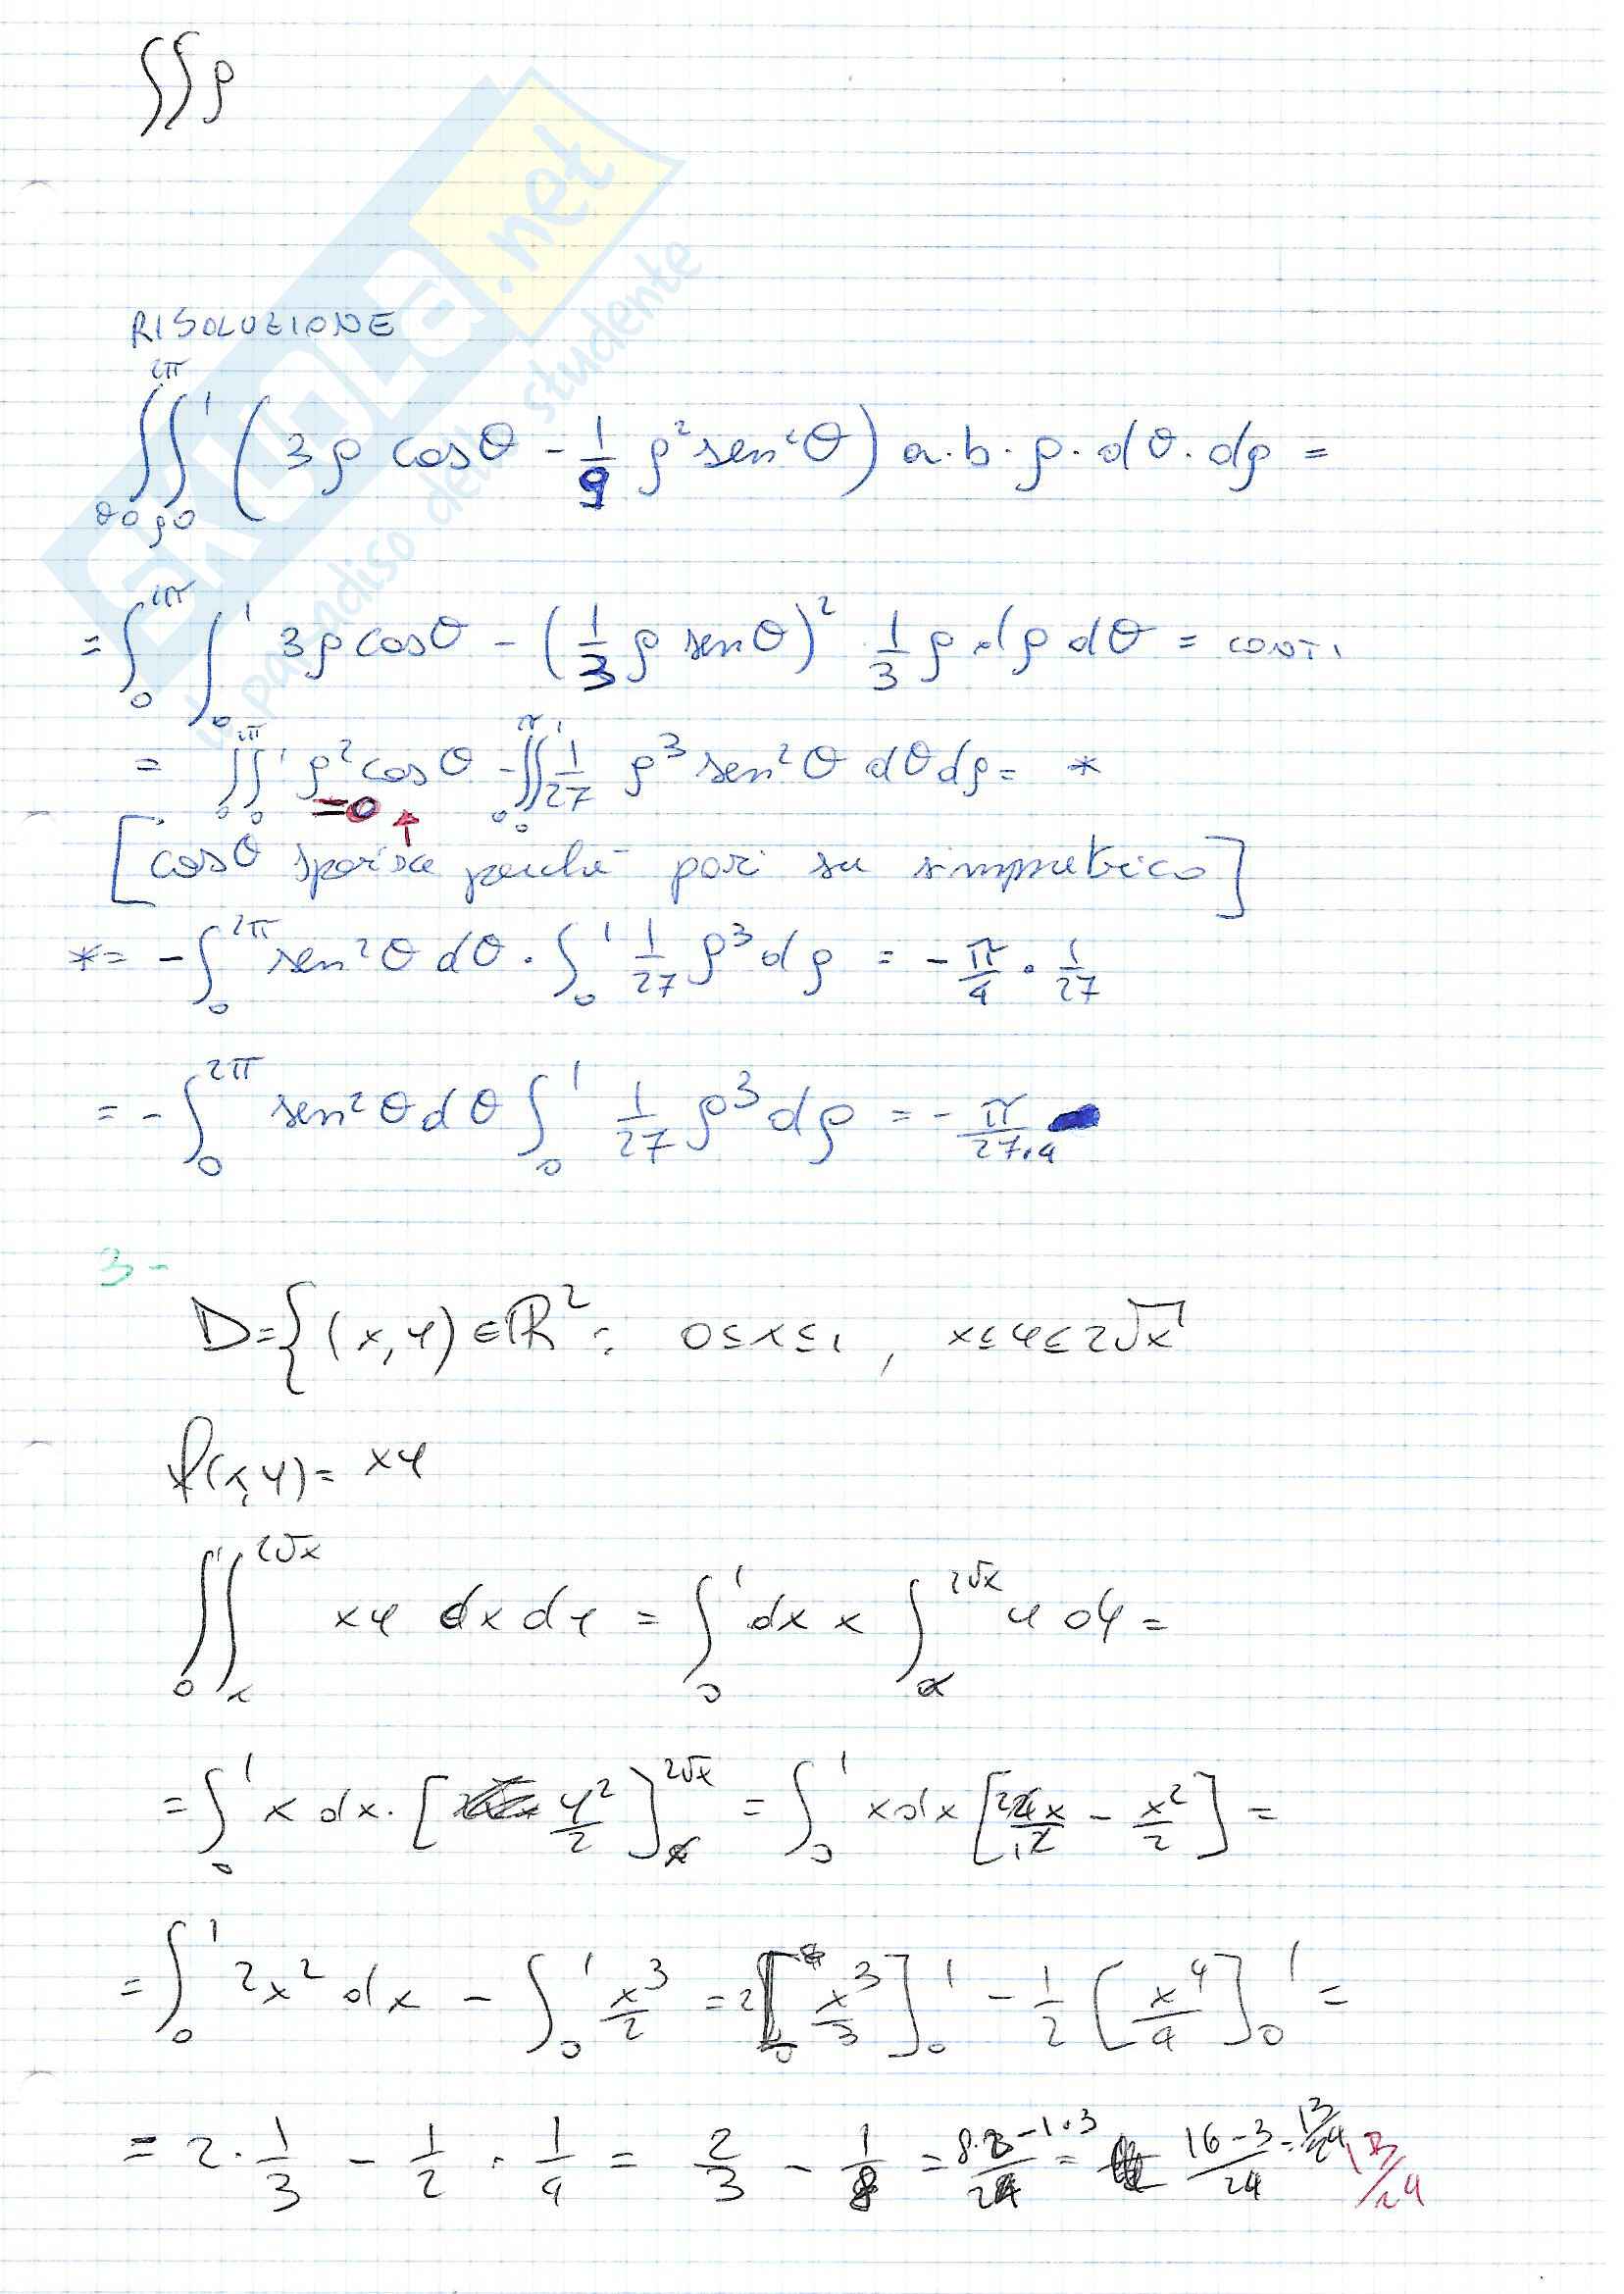 ∫∫ρ
SKUOLA.net
il paradiso dello studente
RISOLUZIONE
∫_{θ0}^{2π}∫_{ρ0}^{1} (3ρ cosθ - 1/9 ρ² sen²θ) a·b·ρ·dθ·dρ =
= ∫_0^{2π} ∫_0^1 3ρ cosθ - (1/3 ρ senθ)² 1/3 ρ dρ dθ = conti
= ∫_0^{2π}∫_0^1 ρ² cosθ - ∫_0^π∫_0^1 1/27 ρ³ sen²θ dθ dρ = *
=0 ↑
[cosθ sparisce perché pari su simmetrico]
* = - ∫_0^{2π} sen²θ dθ · ∫_0^1 1/27 ρ³ dρ = - π/4 · 1/27
= - ∫_0^{2π} sen²θ dθ ∫_0^1 1/27 ρ³ dρ = - π/27·4
3 -
D = { (x,y) ∈ ℝ² : 0≤x≤1 , x≤y≤2√x
f(x,y) = xy
∫_0^1∫_x^{2√x} xy dx dy = ∫_0^1 dx x ∫_x^{2√x} y dy =
= ∫_0^1 x dx · [y²/2]_x^{2√x} = ∫_0^1 x dx [4x/2 - x²/2] =
= ∫_0^1 2x² dx - ∫_0^1 x³/2 = 2[x³/3]_0^1 - 1/2 [x⁴/4]_0^1 =
= 2·1/3 - 1/2 · 1/4 = 2/3 - 1/8 = 8·2-1·3/24 = 16-3/24 = 13/24 13/24